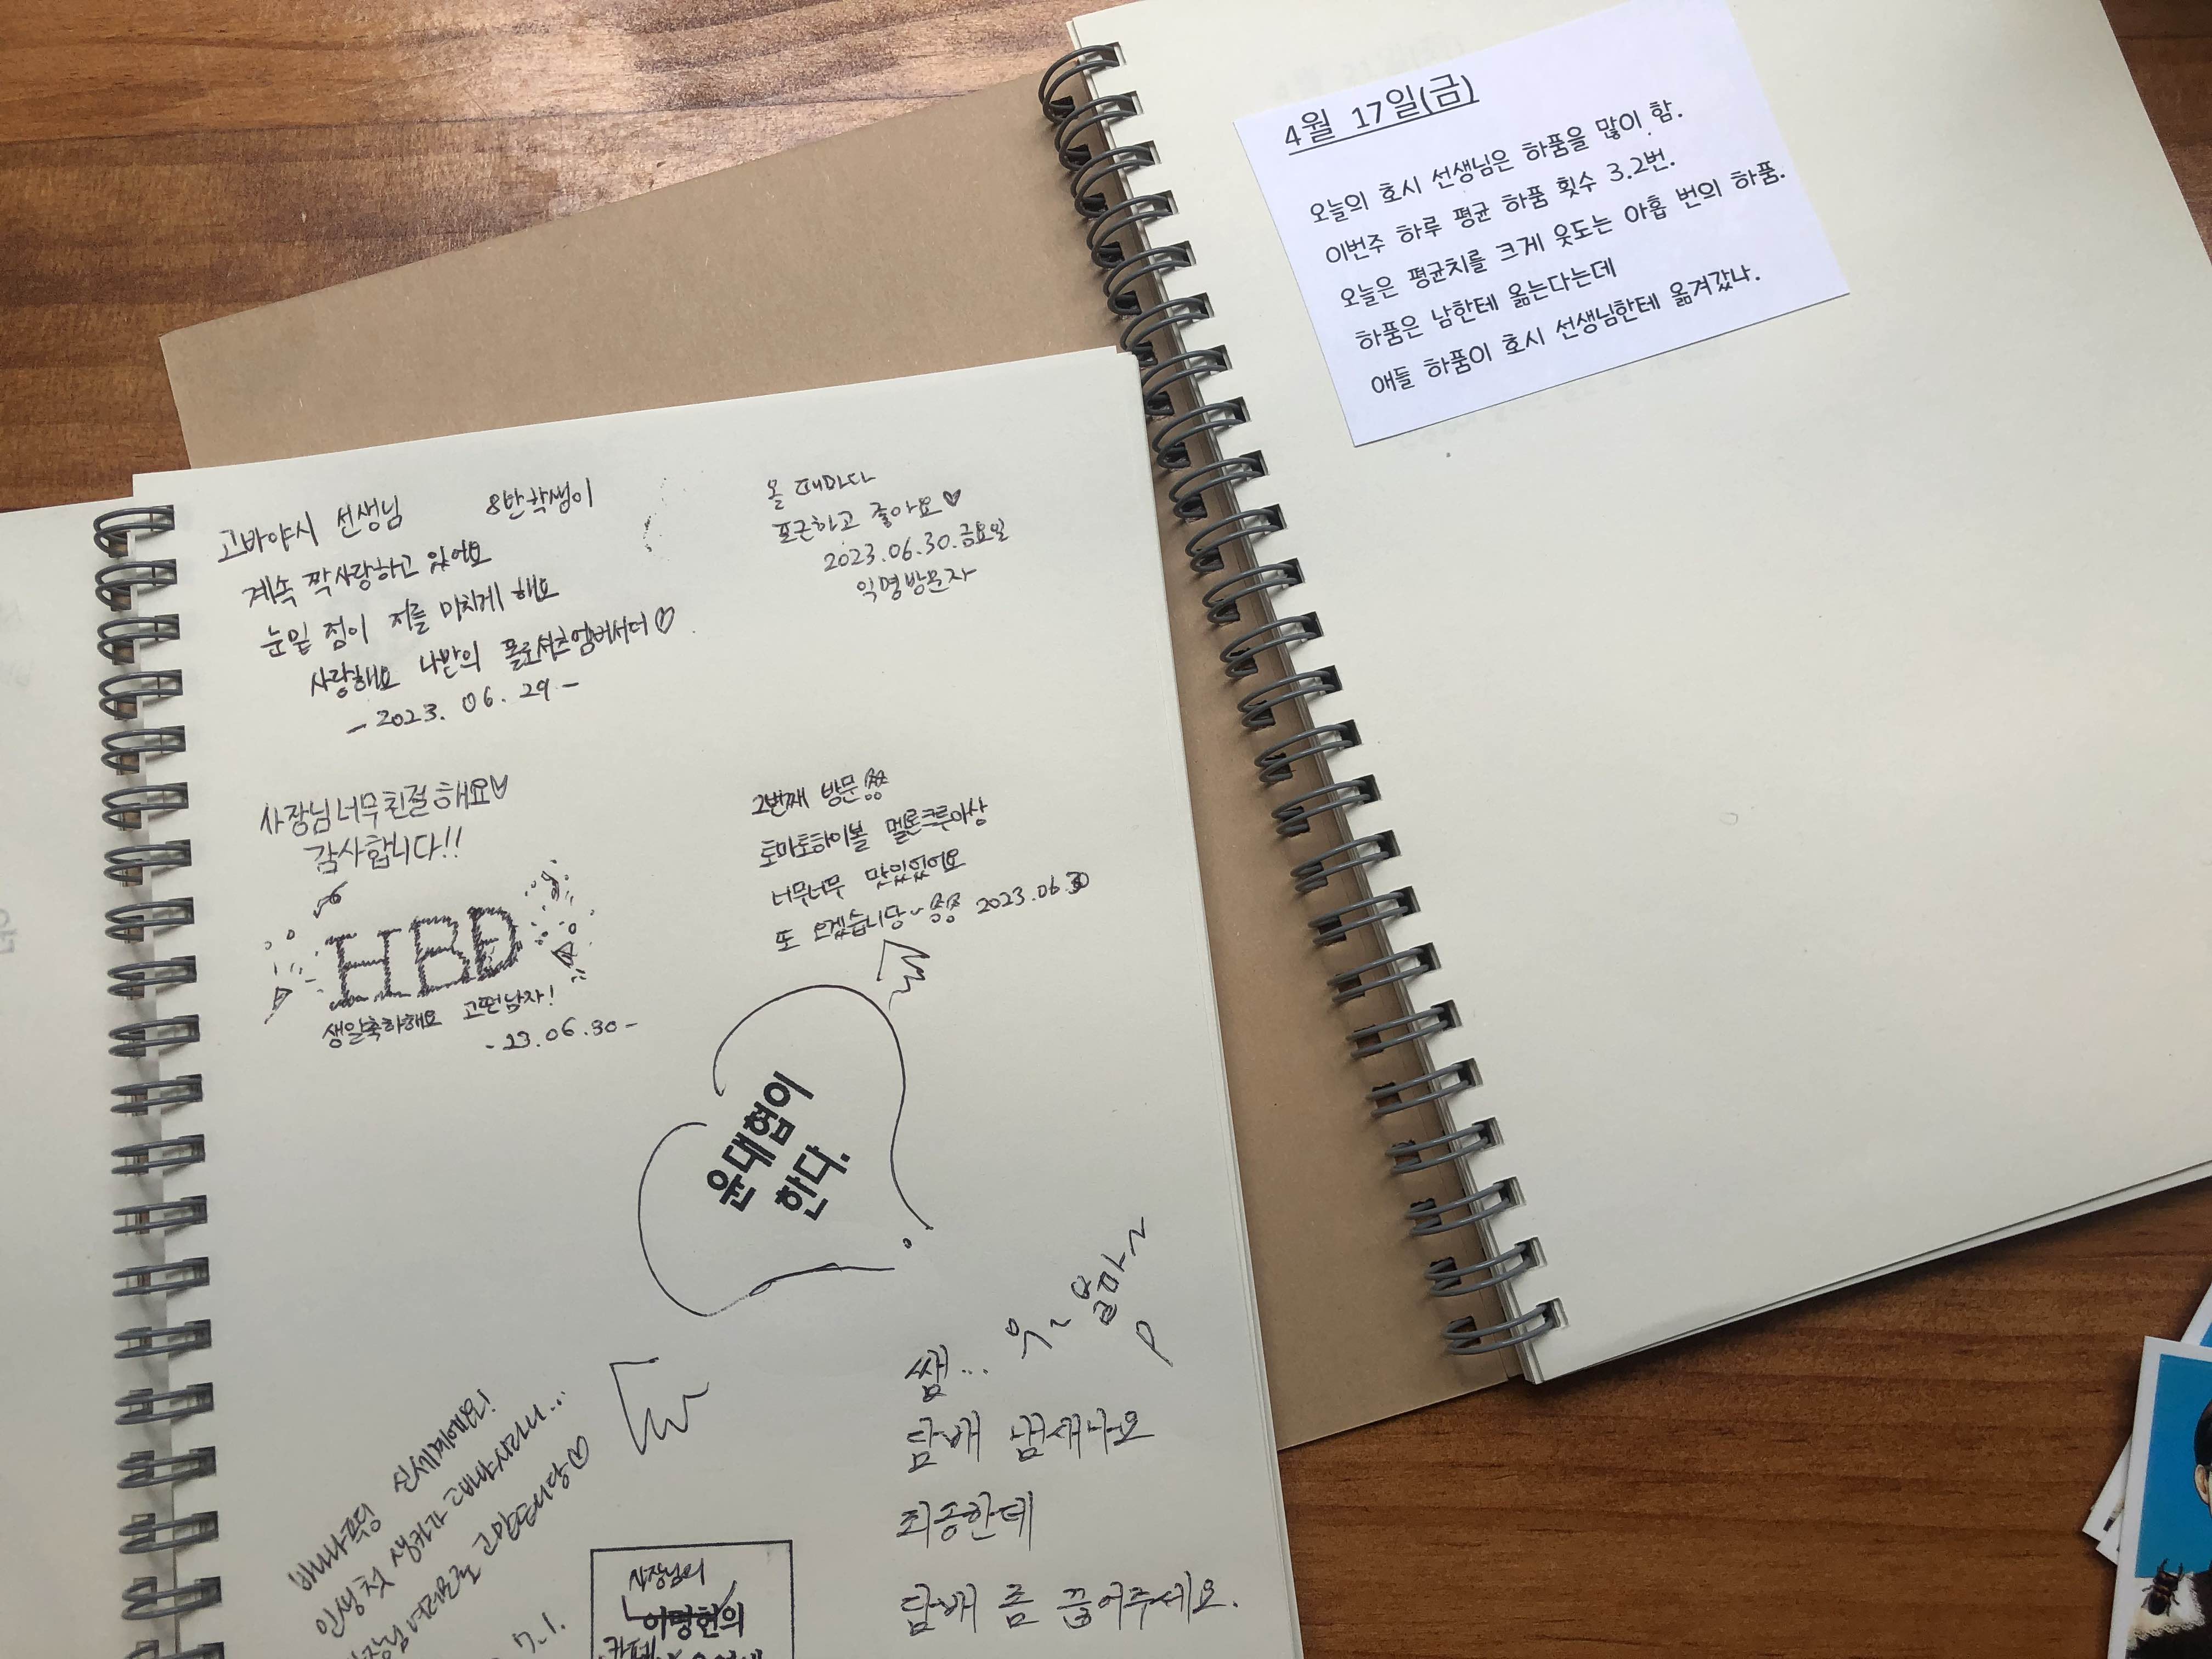 4월 17일(금)
오늘의 호시 선생님은 하품을 많이 함.
이번주 하루 평균 하품 횟수 3.2번.
오늘은 평균치를 크게 윗도는 아홉 번의 하품.
하품은 남한테 옮는다는데
애들 하품이 호시 선생님한테 옮겨갔나.
고바야시 선생님 8반학생이
계속 짝사랑하고 있어요
눈밑 점이 저를 미치게 해요
사랑해요 나만의 폴로셔츠엠버서더♡
-2023. 06. 29-
올 때마다
포근하고 좋아요♡
2023.06.30.금요일
익명방문자
사장님 너무 친절해요♡
감사합니다!!
HBD
생일축하해요 고떤남자!
-23.06.30-
2번째 방문
토마토하이볼 멜론크루아상
너무너무 맛있었어요
또 오겠습니당~ 2023.06.30
윤대협이
한다.
쌤...
담배 냄새나요
죄송한데
담배 좀 끊어주세요.
바나나푸딩 신세계예요!
인생 첫 생카가 고바야시라니...
고맙습니당♡
7.1.
사장님의
이명헌의
카페